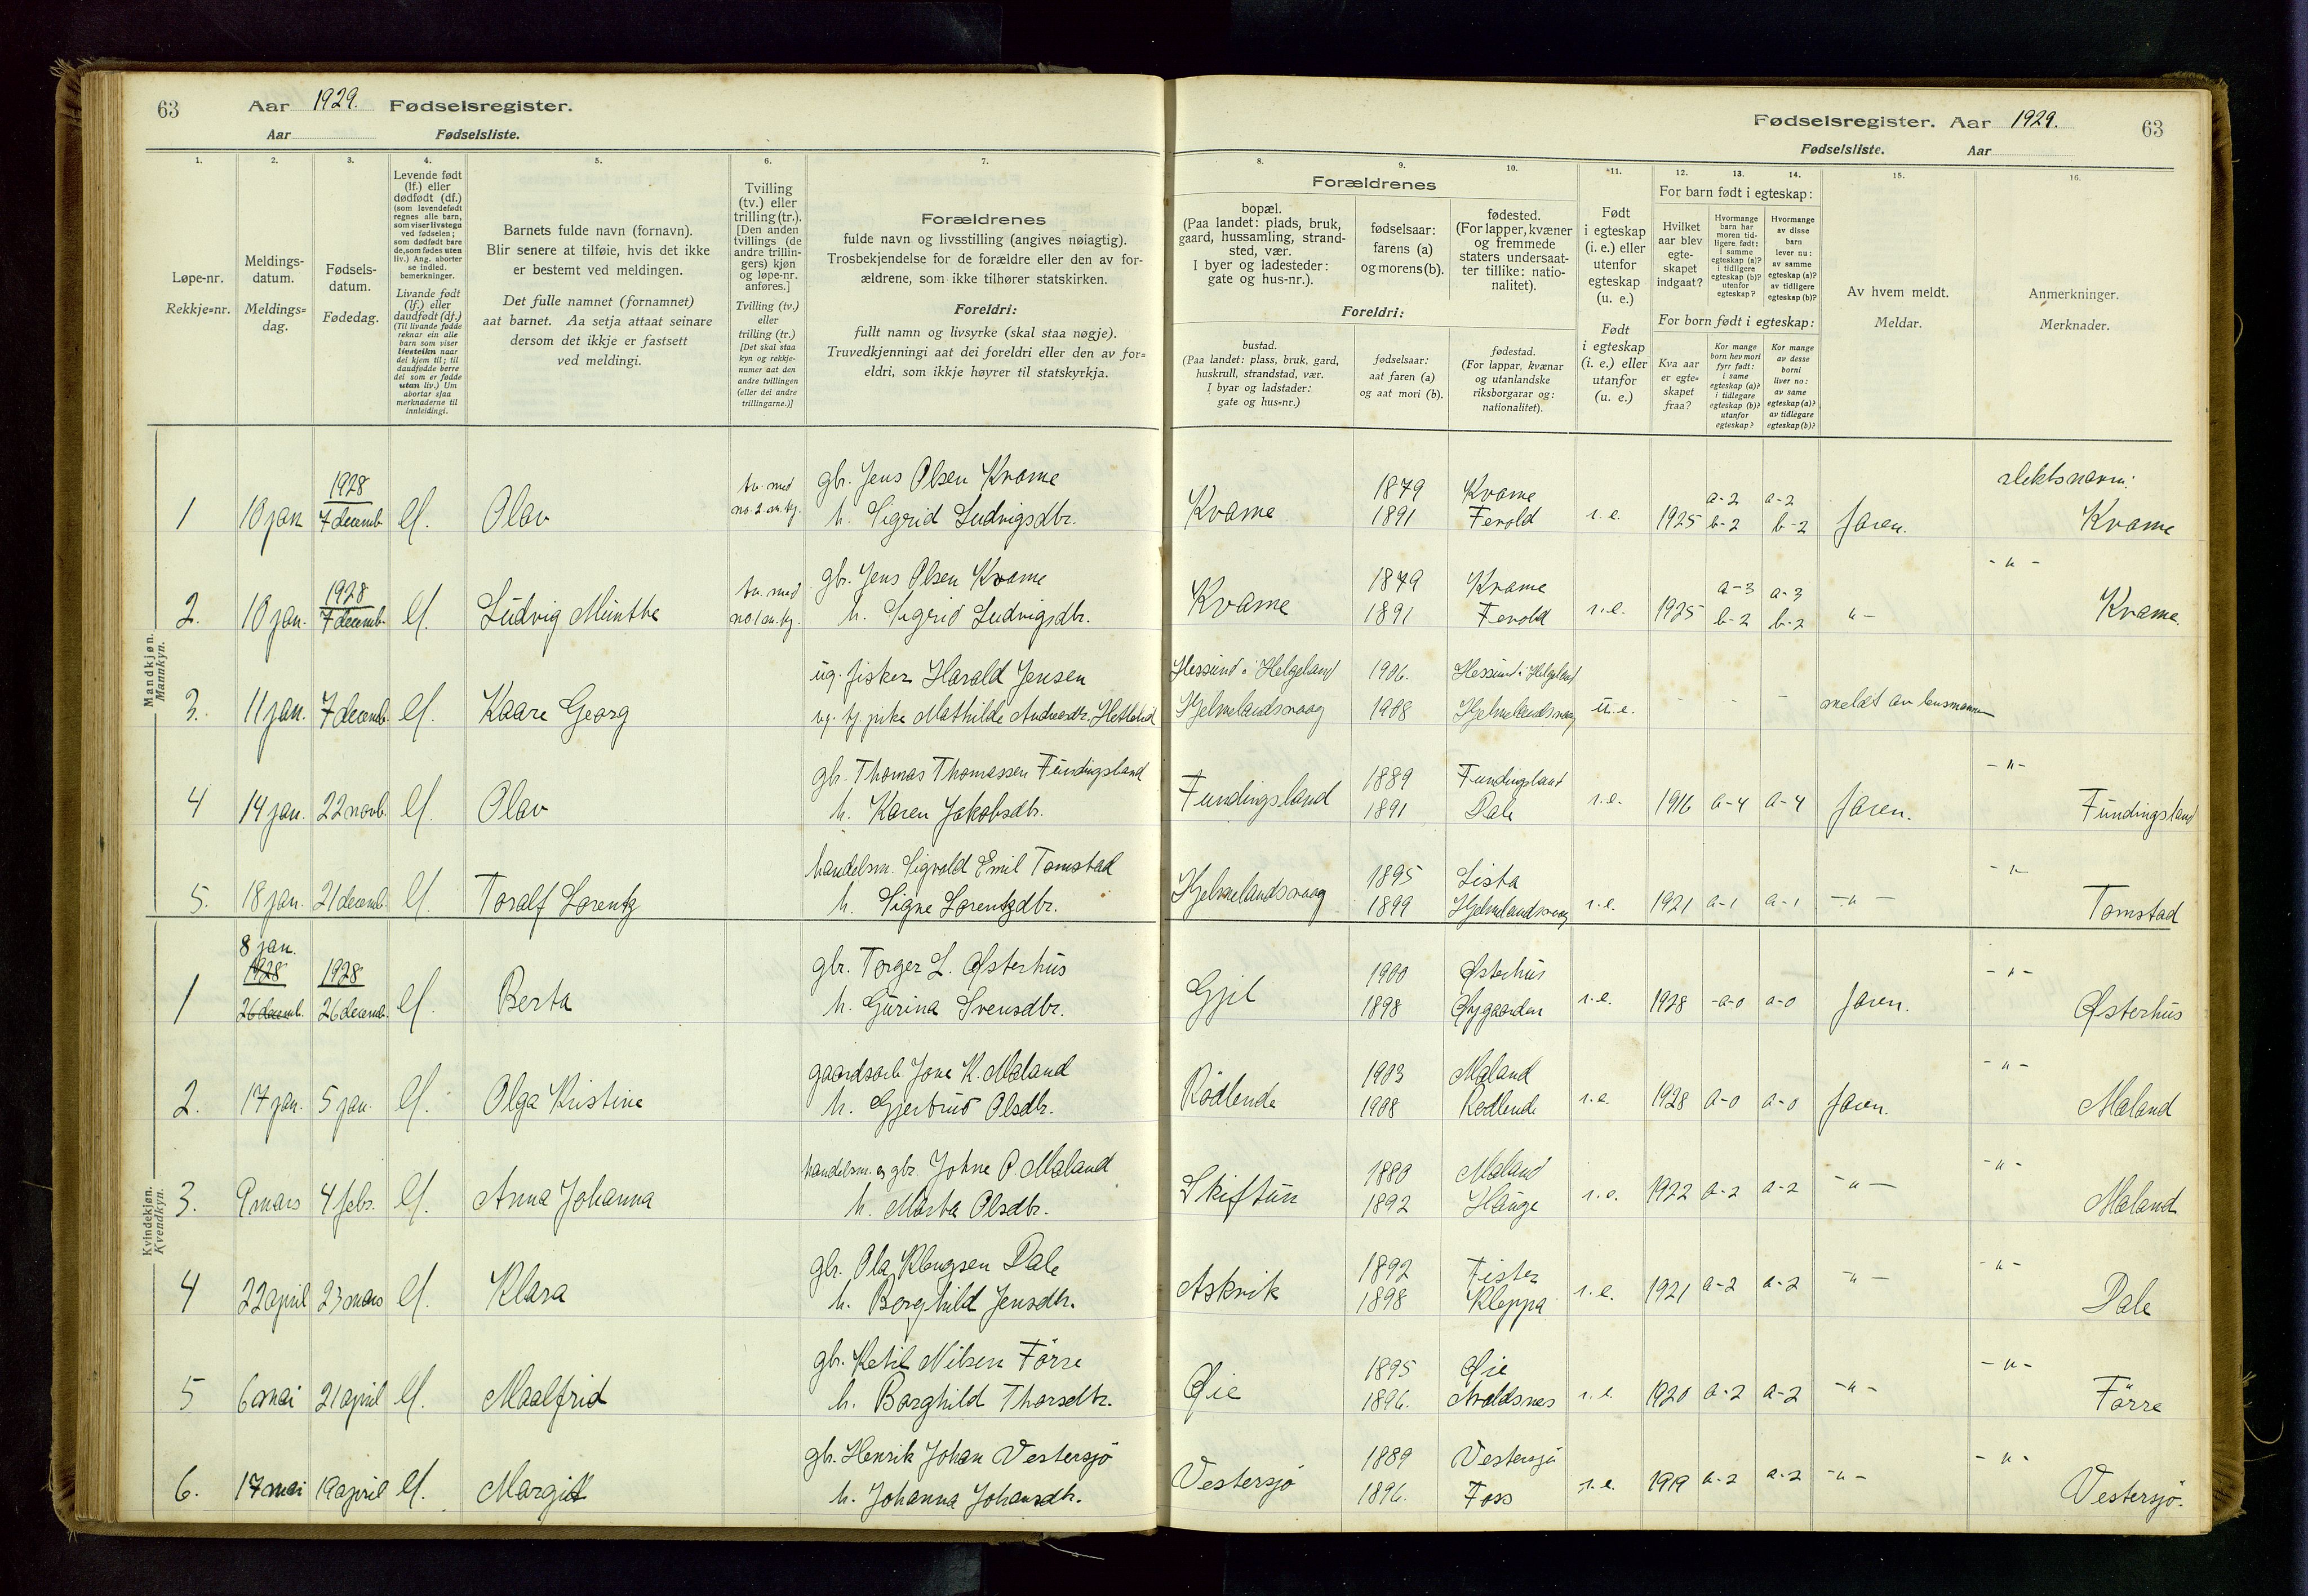 63 Aar 1929. Fødselsregister.
Aar Fødselsliste.
1. 2. 3. 4. 5. 6. 7.
Løpe-nr.
Rekkje-nr.
Meldings-
datum.
Meldings-
dag.
Fødsels-
datum.
Fødedag.
Levende født
(lf.) eller
dødfødt (df.)
(som levendefødt
regnes alle barn,
som viser livstegn
ved fødselen;
som dødfødt bare
de, som fødes uten
liv.) Ang. aborter
se indled.
bemerkninger.
Livande født
(lf.) eller
daudfødt (df.)
(Til livande fødde
reknar ein alle
barn som viser
livsteikn naar
dei kjem til; til
daudfødde berre
dei som er fødde
utan liv.) Um
abortar sjaa
merknaderne til
innleidingi.
Barnets fulde navn (fornavn).
Blir senere at tilføie, hvis det ikke
er bestemt ved meldingen.
Det fulle namnet (fornamnet)
aat barnet. Aa setja attaat seinare
dersom det ikkje er fastsett
ved meldingi.
Tvilling
(tv.) eller
trilling (tr.).
[Den anden
tvillings (de
andre trillin-
gers) kjøn
og løpe-nr.
anføres.]
Tvilling (tv.)
eller
trilling (tr.)
[Det skal staa
kyn og rekkje-
numer aat den
andre tvillingen
(eller dei andre
trillingarne.)]
Forældrenes
fulde navn og livsstilling (angives nøiagtig).
Trosbekjendelse for de forældre eller den av for-
ældrene, som ikke tilhører statskirken.
Foreldri:
fullt namn og livsyrke (skal staa nøgje).
Truvedkjenningi aat dei foreldri eller den av for-
eldri, som ikkje høyrer til statskyrkja.
Mandkjøn.
Mannkyn.
1 10 jan 1928 7 decemb. lf. Olav tv. med no. 2 m. kj.
gbr. Jens Olsen Kvame
h. Sigrid Ludvigsdtr.
2. 10 jan. 1928 7 decemb. lf. Ludvig Munthe tv. med no. 1 m. kj.
gbr. Jens Olsen Kvame
h. Sigrid Ludvigsdtr.
3. 11 jan. 7 decemb. lf. Kaare Georg
ug. fisker Harald Jensen
ug. tj. pike Mathilde Andreasdtr. Hetland
4 14 jan. 22 novb. lf. Olav
gbr. Thomas Thomassen Fundingsland
h. Karen Jakobsdtr.
5. 18 jan. 21 decemb. lf. Toralf Lorentz
handelsm. Sigvald Emil Tomstad
h. Signe Lorentzdtr.
Kvindekjøn.
Kvendkyn.
8 jan.
1 1928 26 decemb. 1928 26 decemb. lf. Berta
gbr. Torger L. Østerhus
h. Gurina Svensdtr.
2. 17 jan. 5 jan. lf. Olga Kristine
gaardsarb Jone K. Mæland
h. Gjertrud Olsdtr.
3. 9 mars 4 febr. lf. Anna Johanna
handelsm. og gbr. Johne O Mæland
h. Marta Olsdtr.
4 22 april 23 mars lf. Klara
gbr. Ola Klengsen Dale
h. Borghild Jensdtr.
5 6 mai 21 april lf. Maalfrid
gbr. Ketil Nilsen Førre
h. Borghild Thorsdtr.
6. 17 mai 19 april lf. Margit
gbr. Henrik Johan Vestersjø
h. Johanna Johansdtr.
Fødselsregister. Aar 1929. 63
Fødselsliste. Aar
8. 9. 10. 11. 12. 13. 14. 15. 16.
Forældrenes
bopæl.
(Paa landet: plads, bruk,
gaard, hussamling, strand-
sted, vær.
I byer og ladesteder:
gate og hus-nr.).
fødselsaar:
farens (a)
og morens (b).
fødested.
(For lapper, kvæner
og fremmede
staters undersaat-
ter tillike: natio-
nalitet).
Foreldri:
bustad.
(Paa landet: plass, bruk, gard,
huskrull, strandstad, vær.
I byar og ladstader:
gate og hus-nr.)
fødselsaar:
aat faren (a)
og aat mori (b).
fødestad.
(For lappar, kvænar
og utanlandske
riksborgarar og:
nationalitet).
Født
i egteskap
(i. e.) eller
utenfor
egteskap
(u. e.)
Født
i egteskap
(i. e.) eller
utanfor
egteskap
(u. e.)
For barn født i egteskap:
Hvilket
aar blev
egte-
skapet
indgaat?
Hvormange
barn har
moren tid-
ligere født:
i samme
egteskap (a)?
i tidligere
egteskap (b)?
utenfor
egteskap?
Hvormange
av disse
barn
lever nu:
av samme
egteskap (a)?
av tidligere
egteskap (b)?
For born født i egteskap:
Kva aar
er egte-
skapet
fraa?
Kor mange
born hev mori
fyrr født:
i same
egteskap (a)?
i tidlegare
egteskap (b)?
utanfor
egteskap?
Kor mange
av desse
borni
liver no:
av same
egteskap (a)?
av tidlegare
egteskap (b)?
Av hvem meldt.
Meldar.
Anmerkninger.
Merknader.
Kvame 1879 1891 Kvame Ferold i. e. 1925 a-2 b-2 a-2 b-2 faren. slektsnavn: Kvame
Kvame 1879 1891 Kvame Ferold i. e. 1925 a-3 b-2 a-3 b-2 " - - " - Kvame
Hessund i Helgeland 1906. Hessund i Helgeland
Hjelmelandsvaag 1908 Hjelmelandsvaag u. e. - - meldt av lensmannen
Fundingsland 1889 1891 Fundingsland Dale i. e. 1916 a-4 a-4 faren. - " - Fundingsland
Hjelmelandsvaag 1895 1899 Lista Hjelmelandsvaag i. e. 1921 a-1 a-1 - " - - " - Tomstad
Gjil 1900 1898 Østerhus Øygaarden i. e. 1928 a-0 a-0 faren. - " - Østerhus
Rødlende 1903 1908 Mæland Rødlende i. e. 1928 a-0 a-0 faren. - " - Mæland
Skiftun 1880 1892 Mæland Hauge i. e. 1922 a-2 a-2 - " - - " - Mæland
Askvik 1892 1898 Fister Kleppa i. e. 1921 a-2 a-2 - " - - " - Dale
Øie 1895 1896. Øie Avaldsnes i. e 1920 a-2 a-2 - " - - " - Førre
Vestersjø 1889 1896. Vestersjø Foss i. e. 1919 a-2 a-2 - " - - " - Vestersjø.